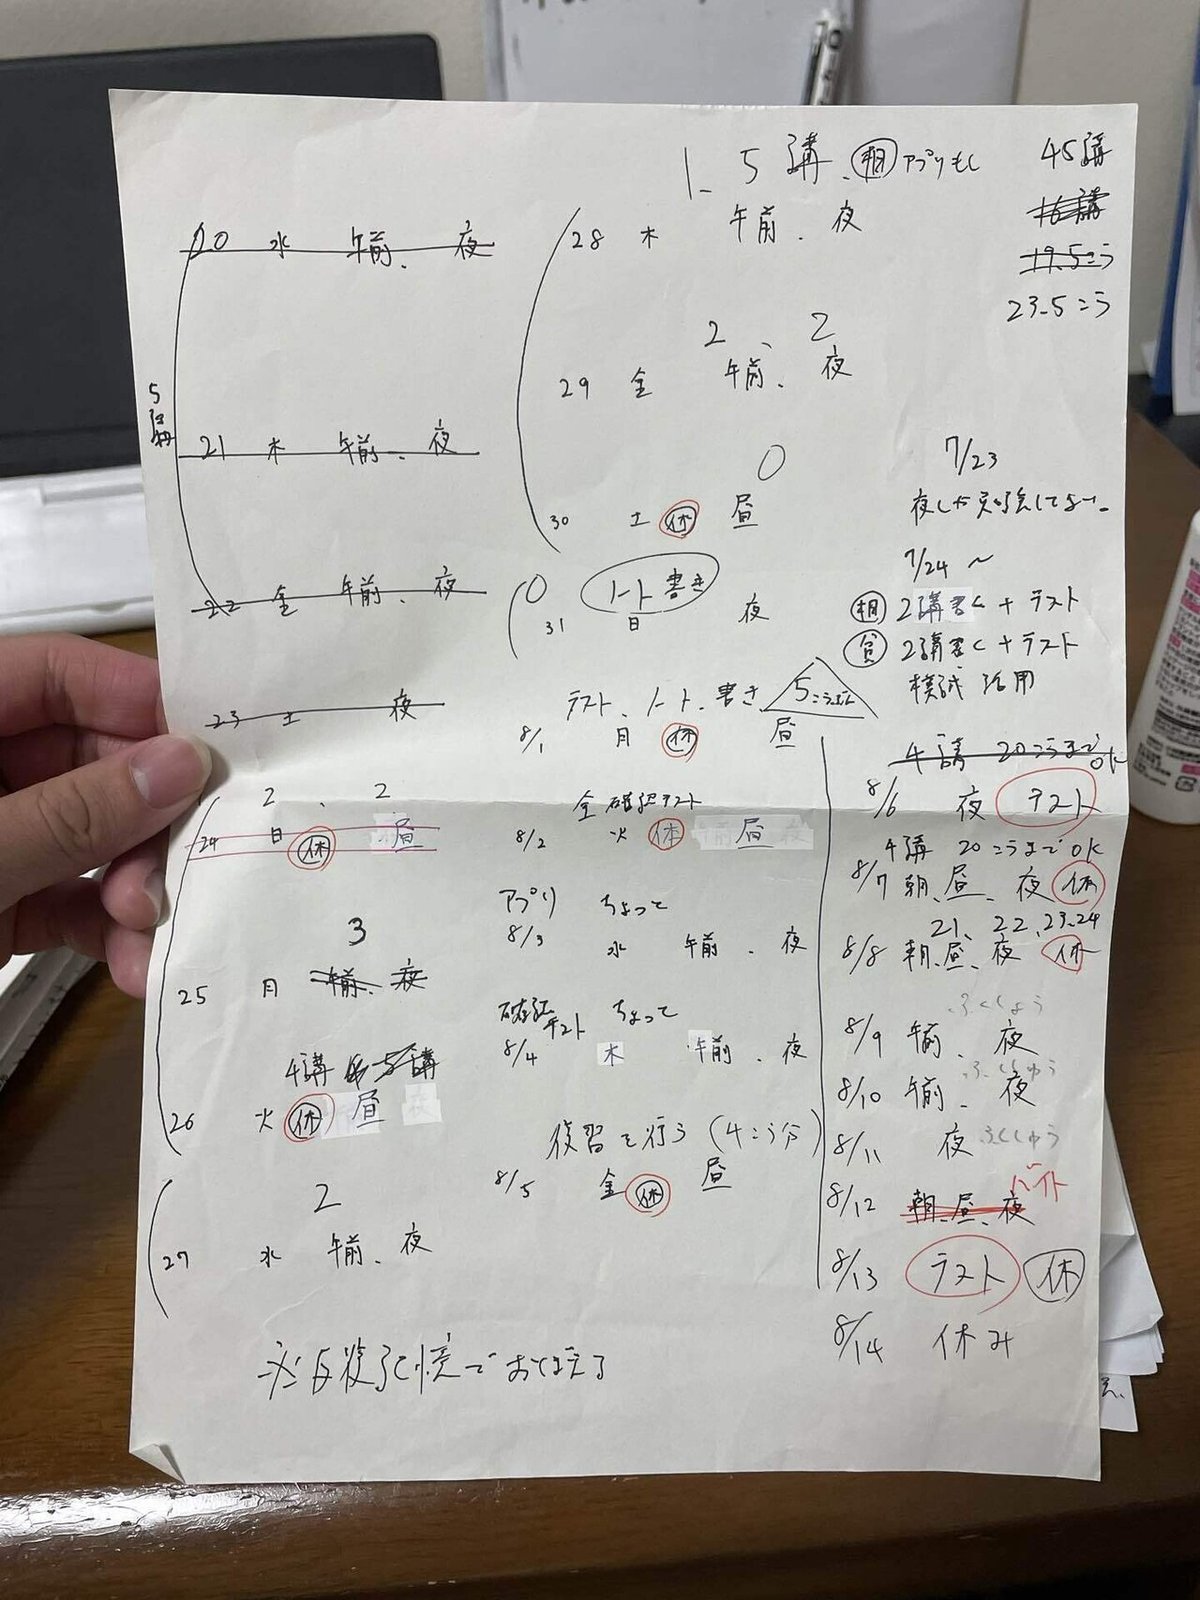 5講
20 水 午前、夜
21 木 午前、夜
22 金 午前、夜
23 土 夜
2、2
24 日 休 昼
3
25 月 午前、夜
4講
26 火 休 昼
2
27 水 午前、夜
※反復了で おぼえる
1、5講、相 アプリもし
28 木 午前、夜
2、2
29 金 午前、夜
0
30 土 休 昼
0 ノート書き
31 日 夜
テスト、ノート、書き 5こうぶん
8/1 月 休 昼
全確認テスト
8/2 火 休 昼
アプリ ちょって
8/3 水 午前、夜
確認テスト ちょって
8/4 木 午前、夜
復習を行う(4こう分)
8/5 金 休 昼
45講
16講
19.5こう
23.5こう
7/23
夜しか勉強してない。
7/24 〜
相 2講書く+テスト
貧 2講書く+テスト
模試活用
4講 20こうまでOK
8/6 夜 テスト
4講 20こうまでOK
8/7 朝、昼、夜 休
21、22、23、24
8/8 朝、昼、夜 休
ふくしゅう
8/9 午前、夜
ふくしゅう
8/10 午前、夜
8/11 夜 ふくしゅう
8/12 朝、昼、夜 バイト
8/13 テスト 休
8/14 休み